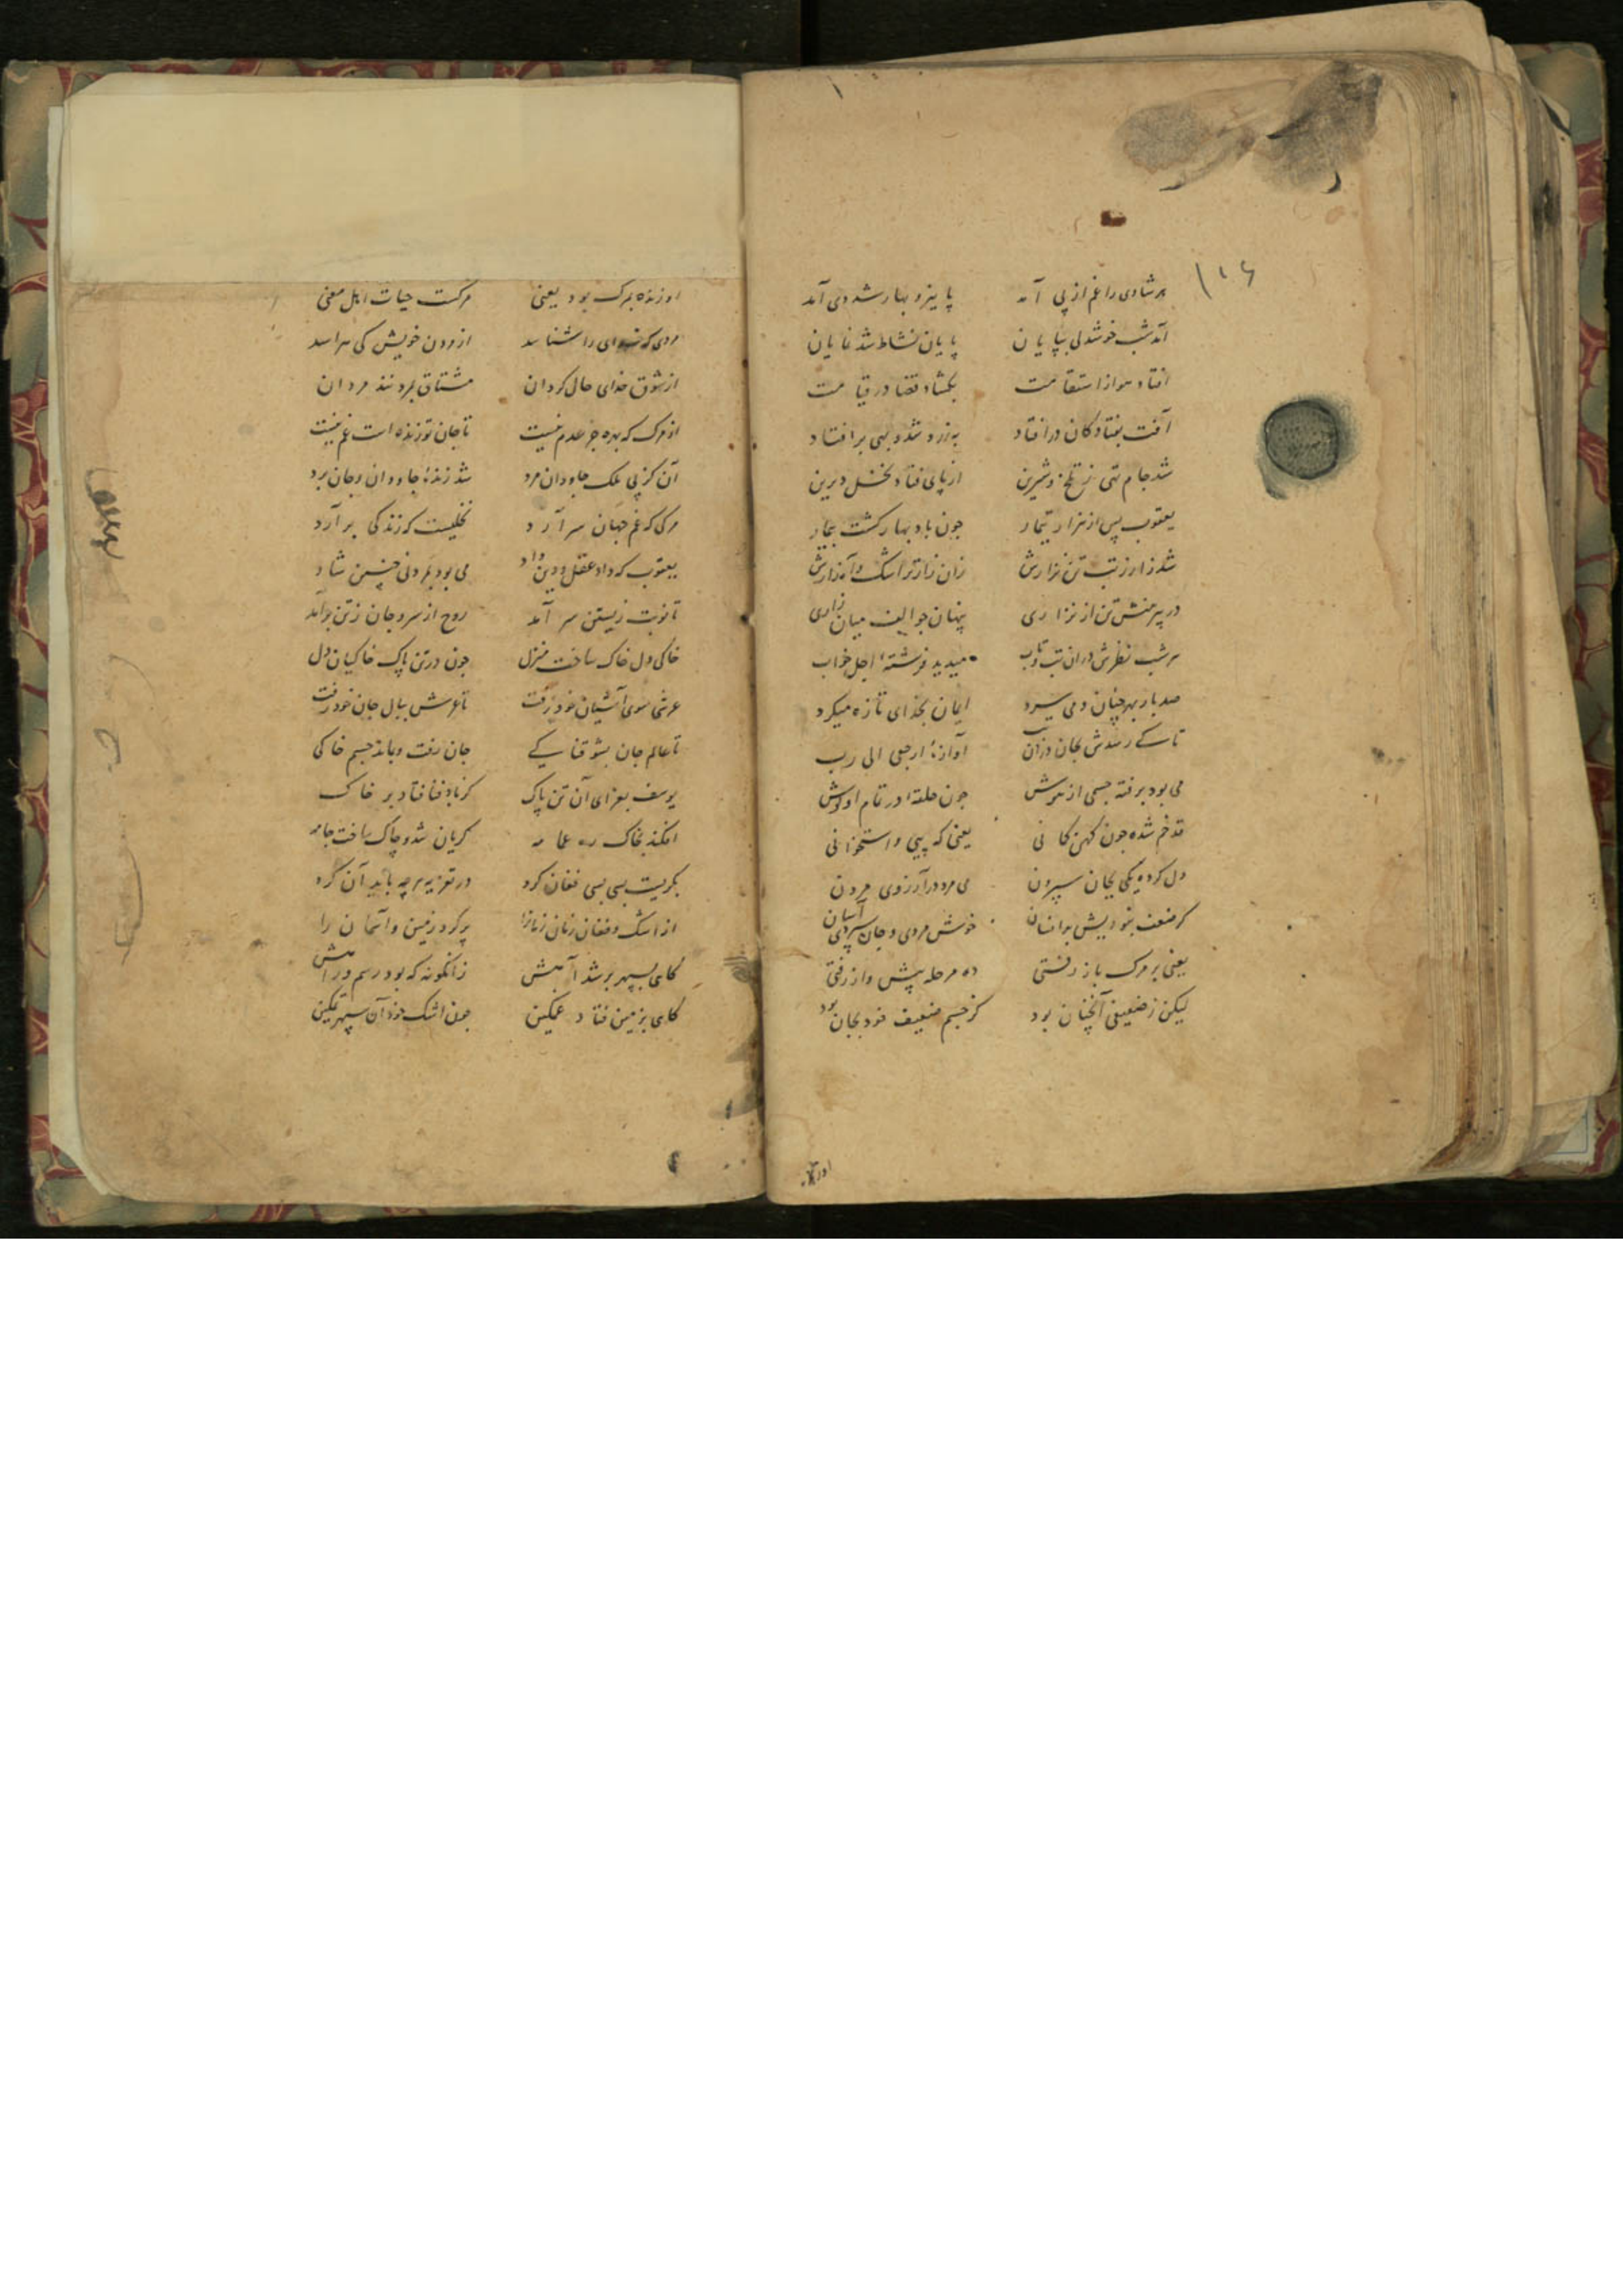 هر شادی را غم از پی آمد پاییز و بهار شد دی آمد
آمد شب خوشدلی بپایان پایان نشاط شد نمایان
افتاد هوا ز استقامت بکشاد قضا در قیامت
آفت بفتادکان در افتاد به زرد شد و بهی بر افتاد
شد جام تهی ز تلخ و شیرین از پای فتاد نخل دیرین
یعقوب پس از هزار تیمار چون باد بهار کشت بیمار
شد زار ز تب تن نزارش زان زارتر اشک و آه زارش
در پیرهنش تن از نزاری پنهان چو الف میان زاری
هر شب نظرش در ان تب و تاب میدید فرشته اجل خواب
صد بار بهر چنان دمی سرد ایمان بخدای تازه میکرد
تا کے رسدش بجان آوازه ارجعی الی رب
می بود برفته جسمی از هوش چون حلقه در تمام او کوش
قد خم شده چون کهن کمانی یعنی که پیی و استخوانی
دل کرده یکی بجان سپردن می مرد در آرزوی مردن
کر ضعف بخودیش بر انسان خوش مردی و جان سپردی آسان
یعنی بر مرک باز رفتی ده مرحله پیش واز رفتی
لیکن ز ضعیفی آنچنان بود کز جسم ضعیف خود بجان بود
او زنده بمرک بود یعنی مرکست حیات اهل معنی
مردی که خدای را شناسد از مردن خویش کی هراسد
از شوق خدای حال کردان مشتاق بمردنند مردان
از مرک که بهره جز عدم نیست تا جان تو زنده است غم نیست
آن کز پی ملک جاودان مرد شد زنده جاودان و جان برد
مرکی که غم جهان سر آرد نخلیست که زندکی بر آرد
یعقوب که داد عقل و دین داد می بود بمردنی چنین شاد
تا نوبت زیستن سر آمد روح از سر و جان ز تن بر آمد
خاکی دل خاک ساخت منزل چون در تن پاک خاکیان دل
عرشی سوی آشیان خود رفت تا عرش ببال جان خود رفت
تا عالم جان بشوقناکے جان رفت و بماند جسم خاکی
یوسف بعزای آن تن پاک کز باد فنا فتاد بر خاک
افکند بخاک ره عمامه کریان شد و چاک ساخت جامه
بکریست بسی بسی فغان کرد در تعزیه هر چه باید آن کرد
از اشک و فغان زمان زمانرا پر کرد زمین و آسمان را
کاهی بسپهر بر شد آهش زانکونه که بود رسم و راهش
کاهی بزمین فتاد غمکین چون اشک خود آن سپهر تمکین